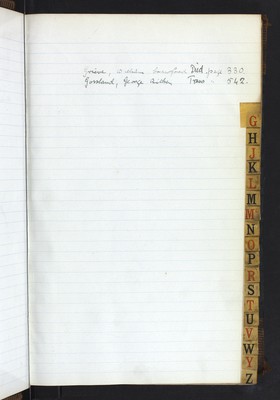 Grieve, William Crawford Died page 330.
Gossland, George Arthur Trans " 542.
G
H
J
K
L
M
M
N
O
P
R
S
T
U
V
W
Y
Z